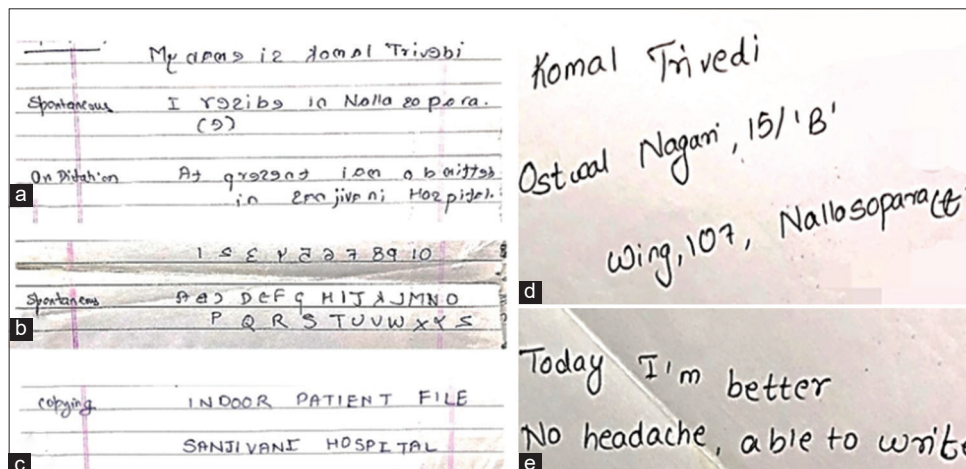 My name is Komal Trivebi
Spontaneous I rezibe in Nalla sopora.
(e)
On Dictation At qrezent i am a bmitted
in Sanjivani Hospital.
a
1 2 3 4 5 6 7 8 9 10
Spontaneous A B C D E F G H I J K L M N O
b P Q R S T U V W X Y Z
Copying INDOOR PATIENT FILE
c SANJIVANI HOSPITAL
Komal Trivedi
Ostwal Nagari, 15/'B'
Wing, 107, Nallosopara (E
d
Today I'm better
No headache, able to write
e